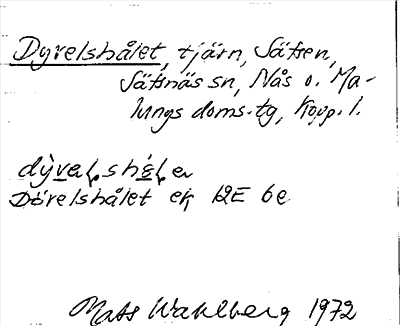 Dyvelshålet, tjärn, Säfsen,
Säfsnäs sn, Nås o. Ma-
lungs doms.tg, Kopp. l.
dỳvaḷshé̱ḷeṇ
Dövelshålet ek 12E 6e
Mats Wahlberg 1972